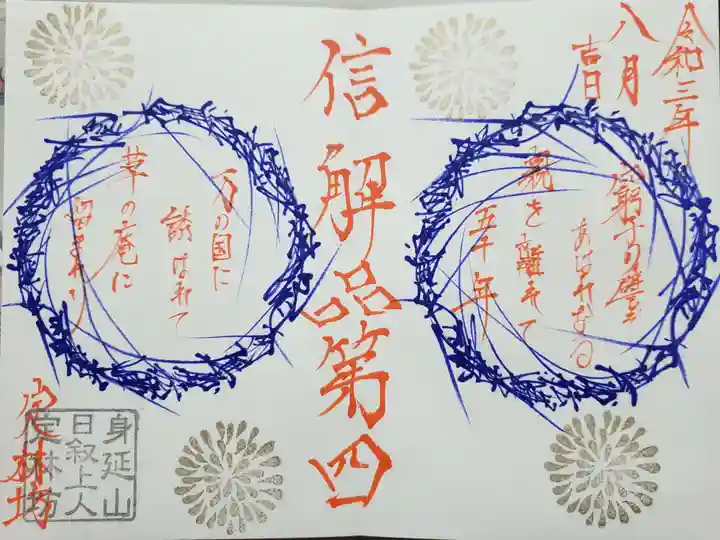 令和三年
八月
吉日
窮子の譬
あはれなる
親を離れて
五十年
信解品第四
万の国に
草の庵に
定林坊
身延山
日叙上人
定林坊